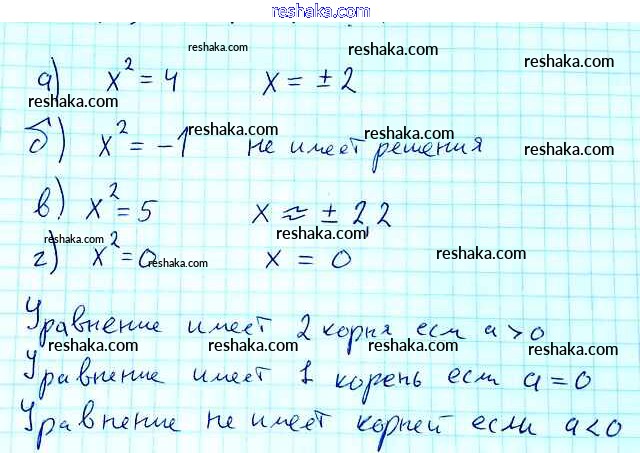 reshaka.com
reshaka.com reshaka.com
а) x² = 4 x = ± 2
reshaka.com reshaka.com
б) x² = -1 не имеет решения
reshaka.com reshaka.com reshaka.com
в) x² = 5 x ≈ ± 2,2
reshaka.com reshaka.com reshaka.com
г) x² = 0 x = 0
reshaka.com
Уравнение имеет 2 корня если a > 0
reshaka.com reshaka.com reshaka.com
Уравнение имеет 1 корень если a = 0
reshaka.com reshaka.com reshaka.com
Уравнение не имеет корней если a < 0